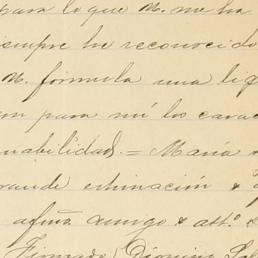 para lo que M. me ha
siempre he reconocido
M. formula una li
para mí los carac
abilidad. = María
grande estimación &
afmo. amigo & atto.
Firmado, Dionisio